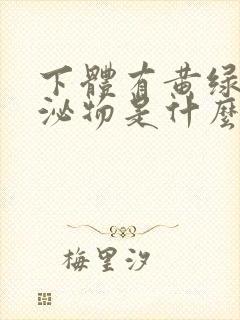 下體有黄绿
泌物是什麼
梅里汐